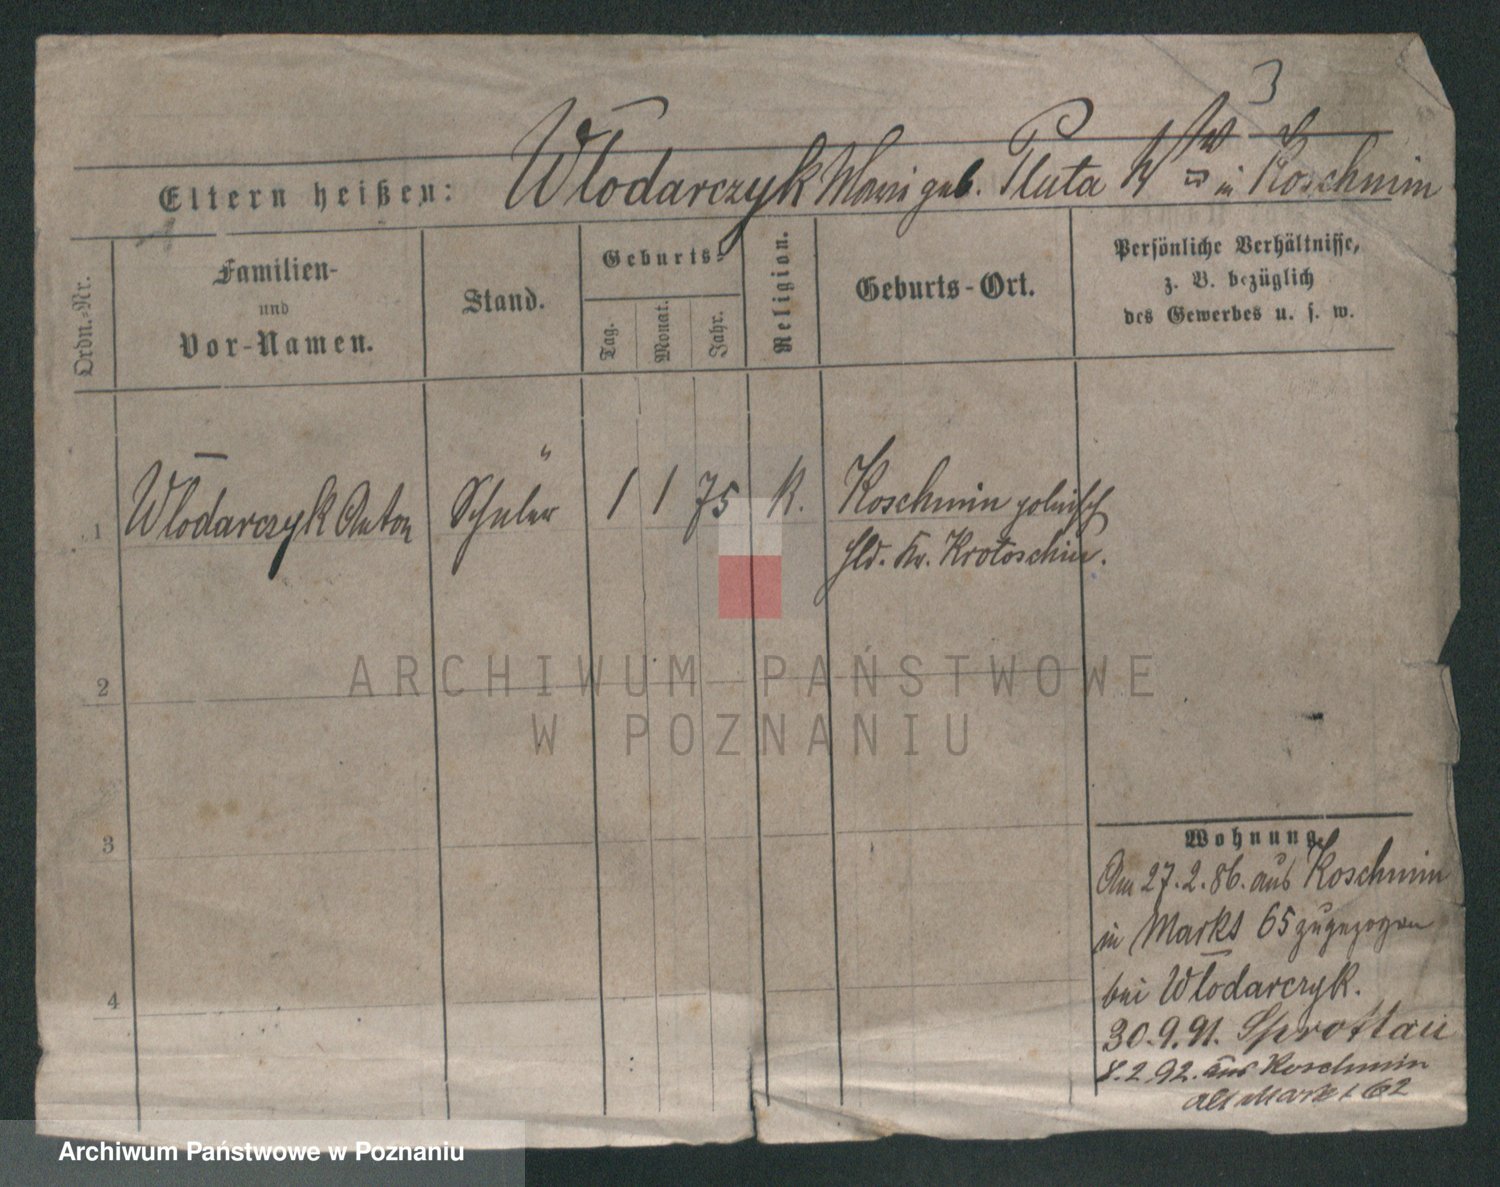 3
Eltern heißen: Włodarczyk Marie geb. Pluta in Koschmin
Ordn.-Nr.
Familien-
und
Vor-Namen.
Stand.
Geburts-
Tag.
Monat.
Jahr.
Religion.
Geburts-Ort.
Persönliche Verhältnisse,
z. B. bezüglich
des Gewerbes u. s. w.
1 Włodarczyk Anton Schüler 1 1 75 k. Koschmin polnisch
Hld. Kr. Krotoschin.
ARCHIWUM PAŃSTWOWE
W POZNANIU
2
3
4
Wohnung.
Am 27.2.86. aus Koschmin
in Markt 65 zugezogen
bei Włodarczyk.
30.9.91. Sprottau
8.2.92. aus Koschmin
alt Markt 62
Archiwum Państwowe w Poznaniu